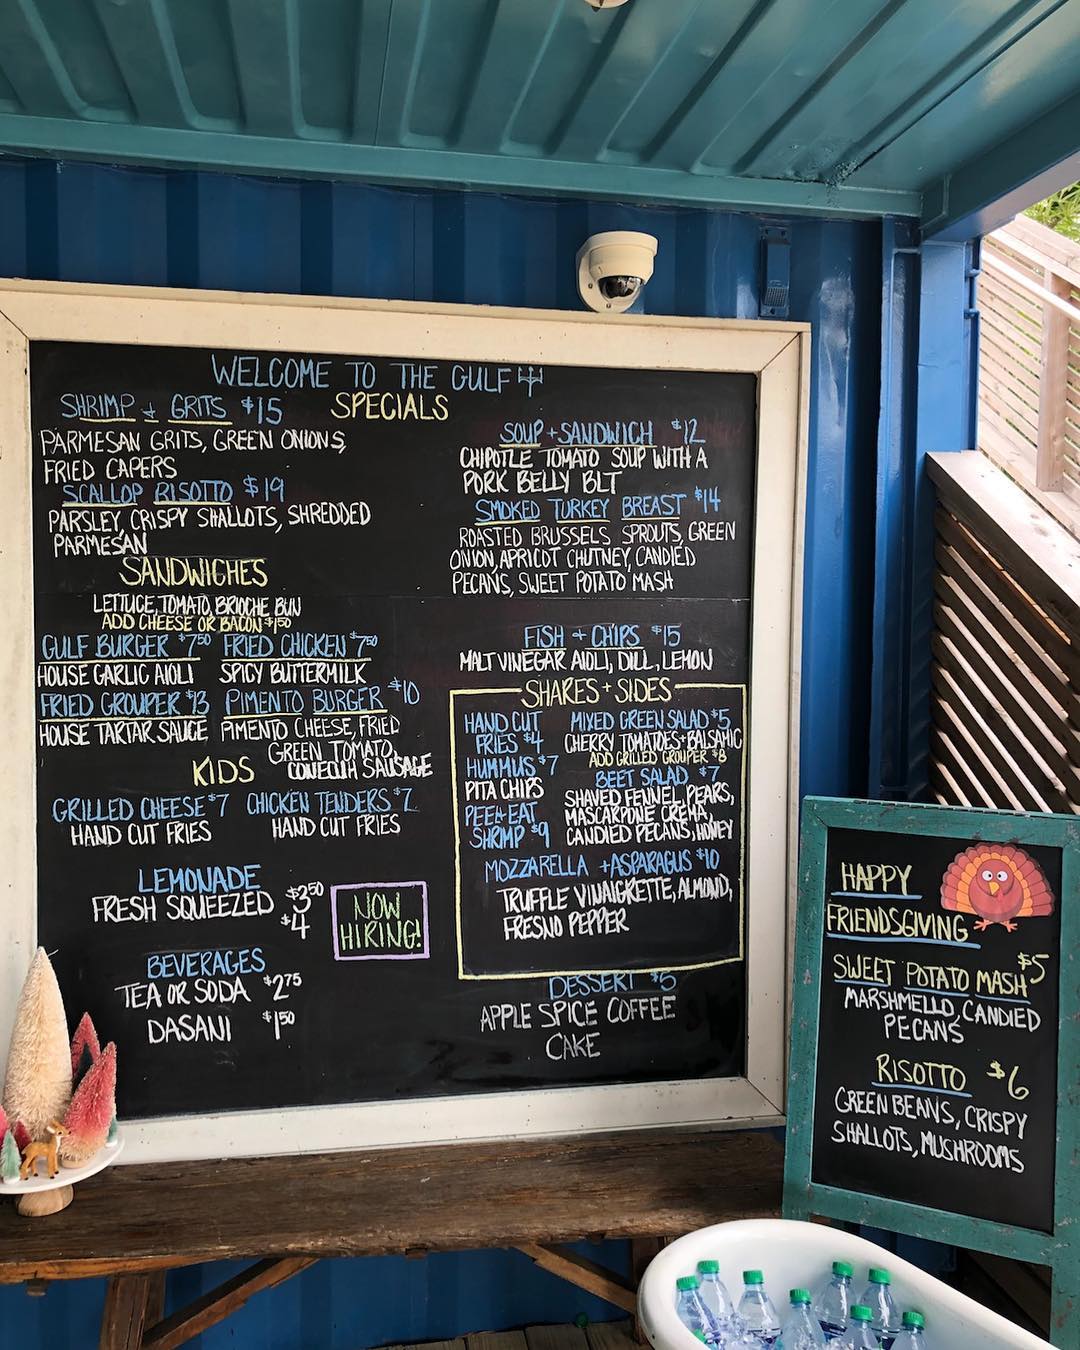 WELCOME TO THE GULF
SPECIALS
SHRIMP & GRITS $15
PARMESAN GRITS, GREEN ONIONS,
FRIED CAPERS
SCALLOP RISOTTO $19
PARSLEY, CRISPY SHALLOTS, SHREDDED
PARMESAN
SOUP + SANDWICH $12
CHIPOTLE TOMATO SOUP WITH A
PORK BELLY BLT
SMOKED TURKEY BREAST $14
ROASTED BRUSSELS SPROUTS, GREEN
ONION, APRICOT CHUTNEY, CANDIED
PECANS, SWEET POTATO MASH
SANDWICHES
LETTUCE, TOMATO, BRIOCHE BUN
ADD CHEESE OR BACON $1.50
GULF BURGER $7.50
HOUSE GARLIC AIOLI
FRIED CHICKEN $7.50
SPICY BUTTERMILK
FRIED GROUPER $13
HOUSE TARTAR SAUCE
PIMENTO BURGER $10
PIMENTO CHEESE, FRIED
GREEN TOMATO,
CONECUH SAUSAGE
FISH + CHIPS $15
MALT VINEGAR AIOLI, DILL, LEMON
KIDS
GRILLED CHEESE $7
HAND CUT FRIES
CHICKEN TENDERS $7
HAND CUT FRIES
LEMONADE
FRESH SQUEEZED $3.50
$4
NOW
HIRING!
BEVERAGES
TEA OR SODA $2.75
DASANI $1.50
SHARES + SIDES
HAND CUT
FRIES $4
HUMMUS $7
PITA CHIPS
PEEL+EAT
SHRIMP $9
MIXED GREEN SALAD $5
CHERRY TOMATOES+BALSAMIC
ADD GRILLED GROUPER $8
BEET SALAD $7
SHAVED FENNEL, PEARS,
MASCARPONE CREMA,
CANDIED PECANS, HONEY
MOZZARELLA + ASPARAGUS $10
TRUFFLE VINAIGRETTE, ALMOND,
FRESNO PEPPER
DESSERT $5
APPLE SPICE COFFEE
CAKE
HAPPY
FRIENDSGIVING
SWEET POTATO MASH $5
MARSHMELLO, CANDIED
PECANS
RISOTTO $6
GREEN BEANS, CRISPY
SHALLOTS, MUSHROOMS